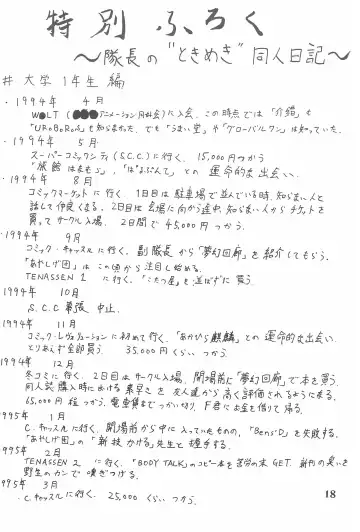 特別ふろく
～隊長の"ときめき"同人日記～
# 大学1年生 編
・1994年 4月
(●●●アニメーション同好会)に入会。この時点では「介錯」も
知らなかった。でも「うまい堂」や「グローバルワン」は知っていた。
・1994年 5月
スーパーコミックシティ(S.C.C.)に行く。15,000円つかう
との運命的な出会い。
・1994年 8月
コミックマーケットに行く。1日目は駐車場で並んでいる時、知らない人と
話して仲良くなる。2日目は会場に向かう途中、知らない人からチケットを
買ってサークル入場。2日間で45,000円つかう。
・1994年 9月
コミック・キャッスルに行く。副隊長から「夢幻回廊」を紹介してもらう。
「あやしげ団」はこの頃から注目し始める。
TENASSEN 1 に行く。「こたつ屋」を並ばずに買う。
1994年 10月
S.C.C 幕張 中止。
1994年 11月
コミック・レヴォリューションに初めて行く。「あかひら麒麟」との運命的な出会い。
とりあえず全部買う。35,000円くらいつかう。
1994年 12月
冬コミに行く。2日目はサークル入場。開場前に「夢幻回廊」で本を買う。
同人誌購入時における素早さを友人達から高く評価されるように来る。
65,000円程つかう。電車賃までつかい切り、F君にお金を借りて帰る。
995年 1月
C.キャッスルに行く。開場前から中に入っていたものの、「Ben's D」を失敗する。
「あやしげ団」の「新技かける」先生と握手する。
995年 2月
TENASSEN 2 に行く。「BODY TALK」のコピー本を苦労の末GET。新刊の臭いを
野生のカンで嗅ぎつける。
995年 3月
・C.キャッスルに行く。25,000くらいつかう。
18